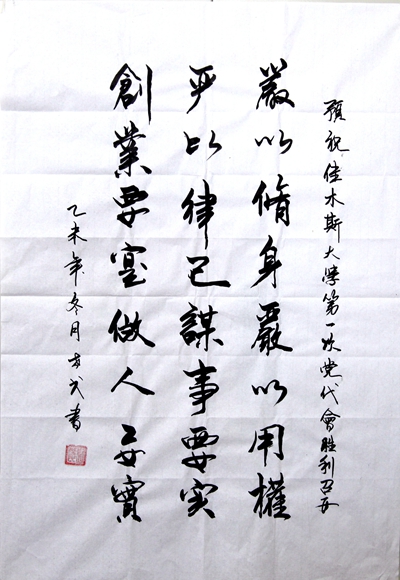 預祝佳木斯大學第一次党代會胜利召开
嚴以脩身嚴以用權
严以律己謀事要实
創業要寔做人要實
乙未年冬月書